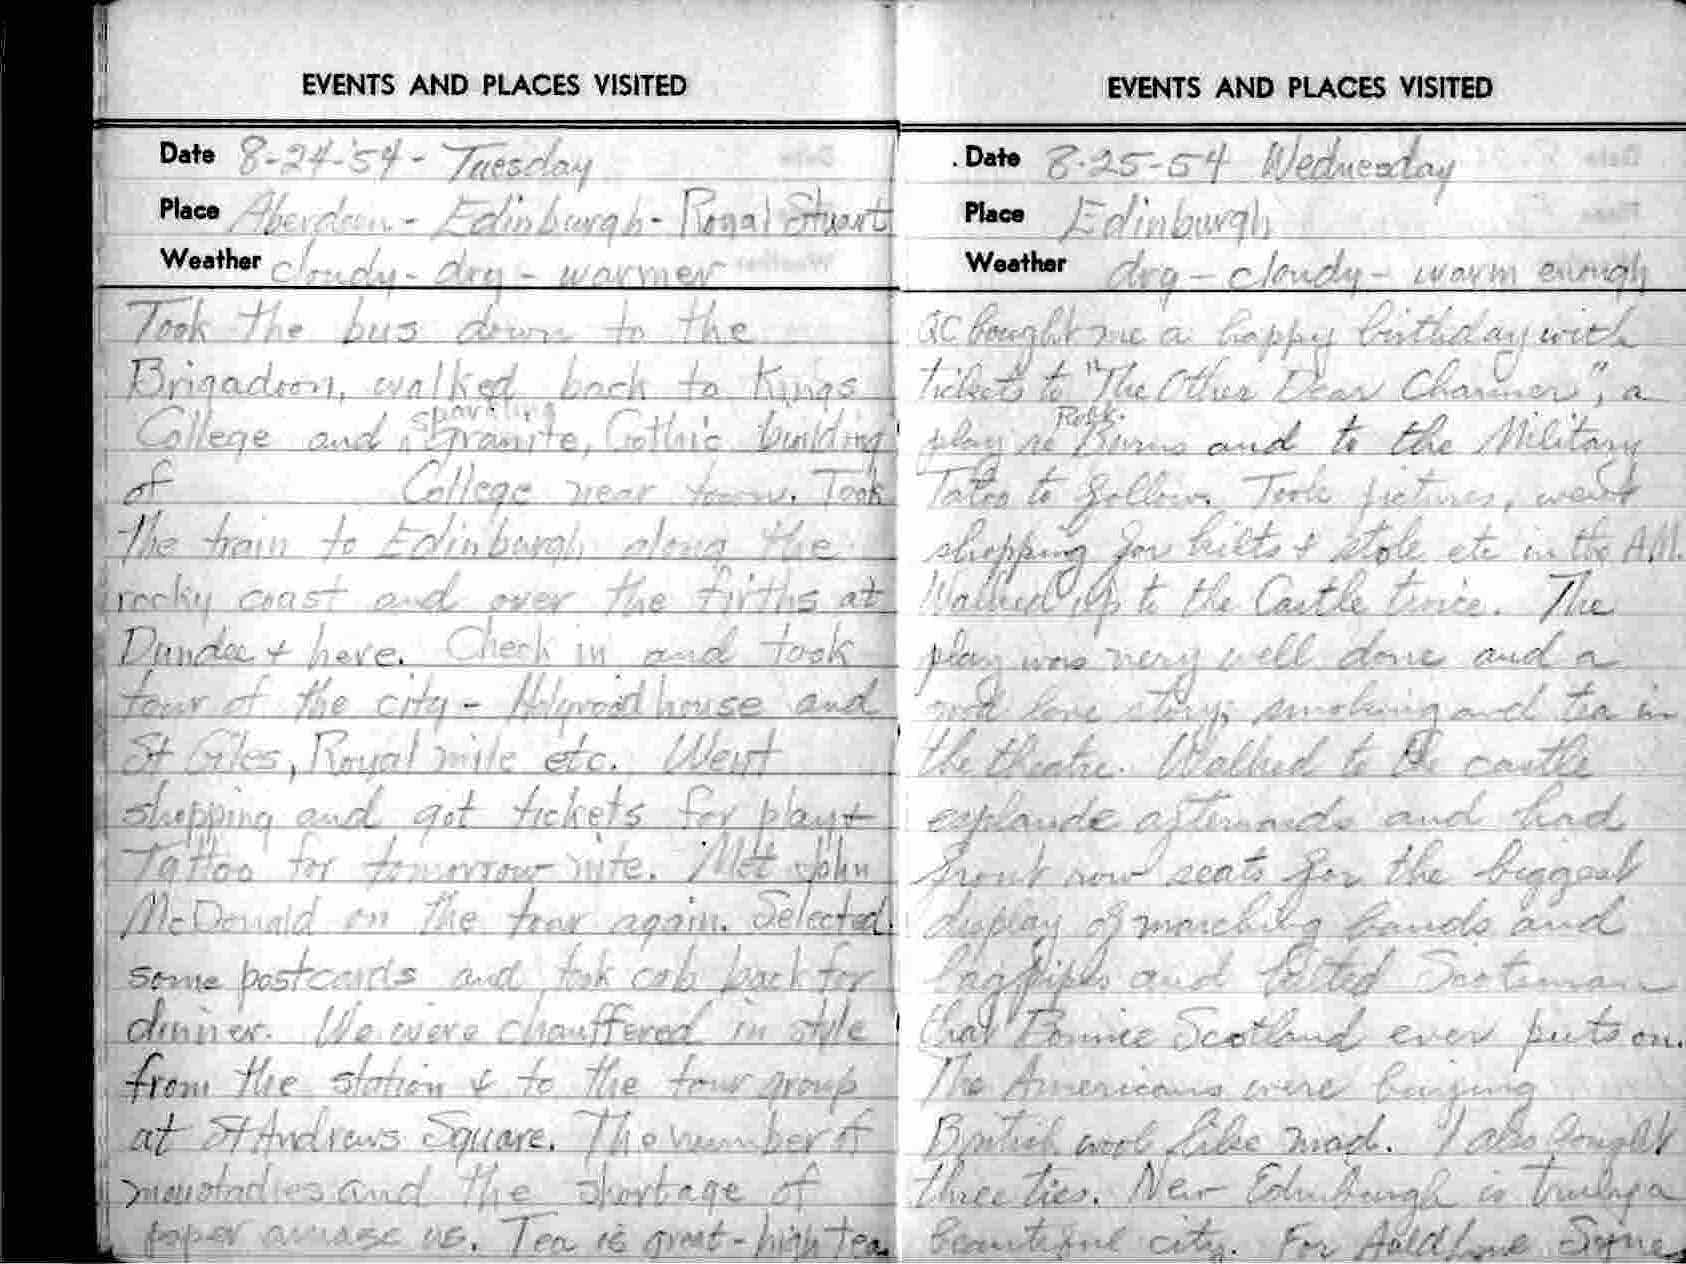 EVENTS AND PLACES VISITED
Date 8-24-'54 - Tuesday
Place Aberdeen - Edinburgh - Royal Stuart
Weather cloudy - dry - warmer
Took the bus down to the
Brigadoon, walked back to Kings
sparkling
College and Granite, Gothic building
of College near town. Took
the train to Edinburgh along the
rocky coast and over the firths at
Dundee + here. Check in and took
tour of the city - Holyrood house and
St Giles, Royal mile etc. Went
shopping and got tickets for play +
Tattoo for tomorrow nite. Met John
McDonald on the tour again. Selected
some postcards and took cab back for
dinner. We were chauffered in style
from the station & to the tour group
at St Andrews Square. The number of
moustaches and the shortage of
paper amase us. Tea is great - high tea
EVENTS AND PLACES VISITED
Date 8-25-54 Wednesday
Place Edinburgh
Weather dry - cloudy - warm enough
QC bought me a happy birthday with
tickets to "The Other Dear Charmer", a
Robt.
play re Burns and to the Military
Tatoo to follow. Took pictures, went
shopping for kilts + stole etc in the A.M.
Walked up to the Castle twice. The
play was very well done and a
good love story; smoking and tea in
the theatre. Walked to the castle
esplande afterwards and had
front row seats for the biggest
display of marching bands and
bagpipes and kilted Scotsman
that Bonnie Scotland ever puts on.
The Americans were buying
British wool like mad. I also bought
three ties. New Edinburgh is truly a
beautiful city. For Auld Syne